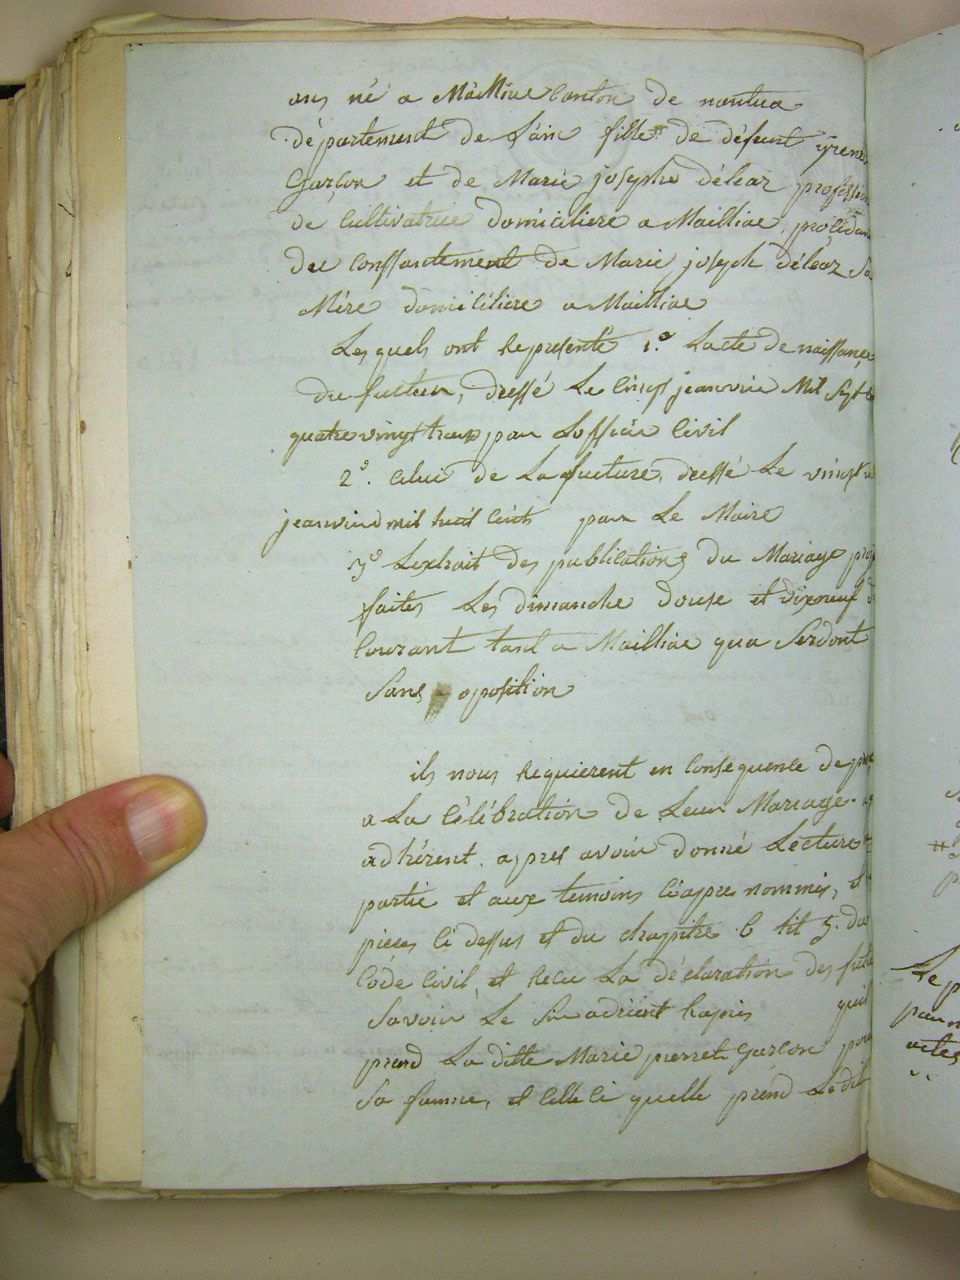 ans né a Mailliac Canton de nantua
département de Lain fille de défunt
Garçon et de Marie josephe déléaz profession
de Cultivatrice domiciliere a Mailliac, procédant
du Conssantement de Marie joseph déléaz Sa
Mére domiciliere a Mailliac
Les quels ont Représenté 1.º Lacte de naissance
du futeur, dressé Le Cinq jeanvié Mil Sept
quatre vingt trois par Loffisié Civil
2º. Celui de La fueture, dressé Le vingt
jeanvié mil huit Cents par Le Maire
3º Lextrait des publications du Mariage
faites Les dimanche douse et dixneuf
Courant tant a Mailliac qua Serdont
Sans oposition
ils nous Requierent en Consequence de
a La Célébration de Leur Mariage.
adhérent. apres avoir donné Lecture
partie et aux temoins Ciapre nommés, et
pieces Ci dessus et du chapitre 6 tit 5. du
Code Civil, et Recu La déclaration des
Savoir Le Sr adrient quil
prend La ditte Marie pierrete Garcon pour
Sa famme, et Celle Ci quelle prend Ledit
Le
par
actes